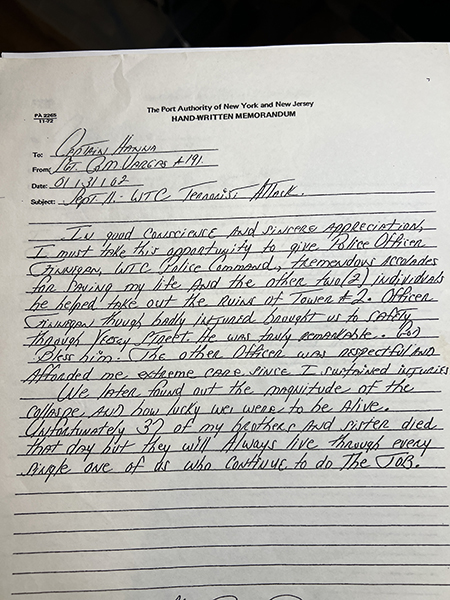 The Port Authority of New York and New Jersey
HAND-WRITTEN MEMORANDUM
PA 2265
11-72
To: Captain Hanna
From: Vargas #191
Date: 01/31/02
Subject: Sept. 11 - WTC Terrorist Attack.
In good conscience and sincere appreciation,
I must take this opportunity to give Police Officer
Finnigan, WTC Police Command, tremendous accolades
for saving my life and the other two (2) individuals
he helped take out the ruins of Tower #2. Officer
Finnigan though badly injured brought us to safety
through Vesey Street. He was truly remarkable.. God
Bless him! The other Officer was respectful and
afforded me extreme care since I sustained injuries
We later found out the magnitude of the
collaspe and how lucky we were to be alive.
Unfortunately 37 of my brothers and sister died
that day but they will always live through every
single one of us who continue to do the JOB.